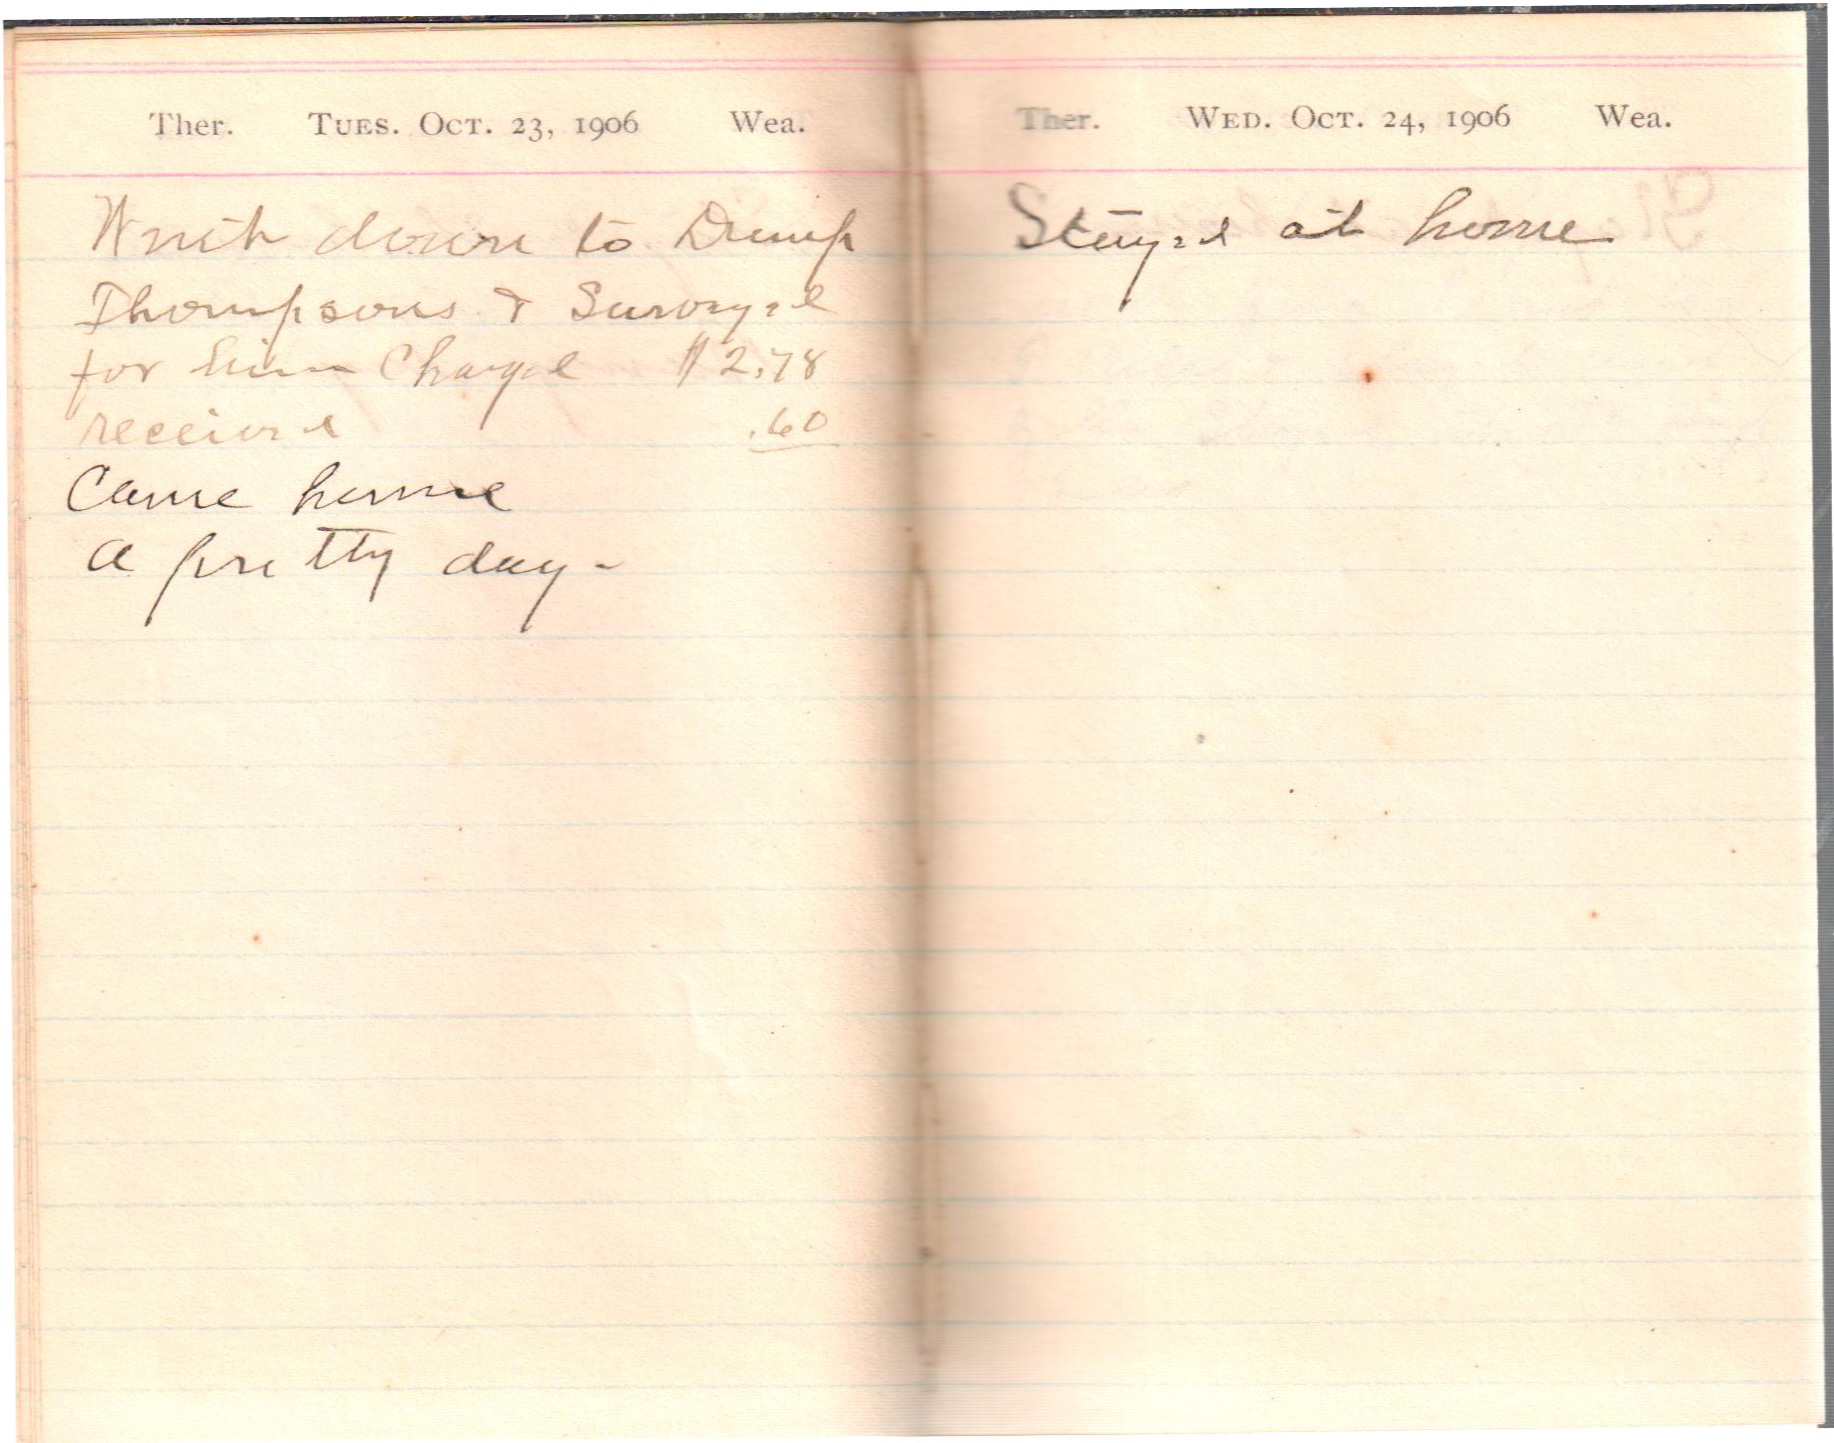 Ther. TUES. OCT. 23, 1906 Wea.
Went down to Dump
Thompsons & Surveyed
for him Charged $2.78
received .60
Came home
a pretty day-
Ther. WED. OCT. 24, 1906 Wea.
Stayed at home